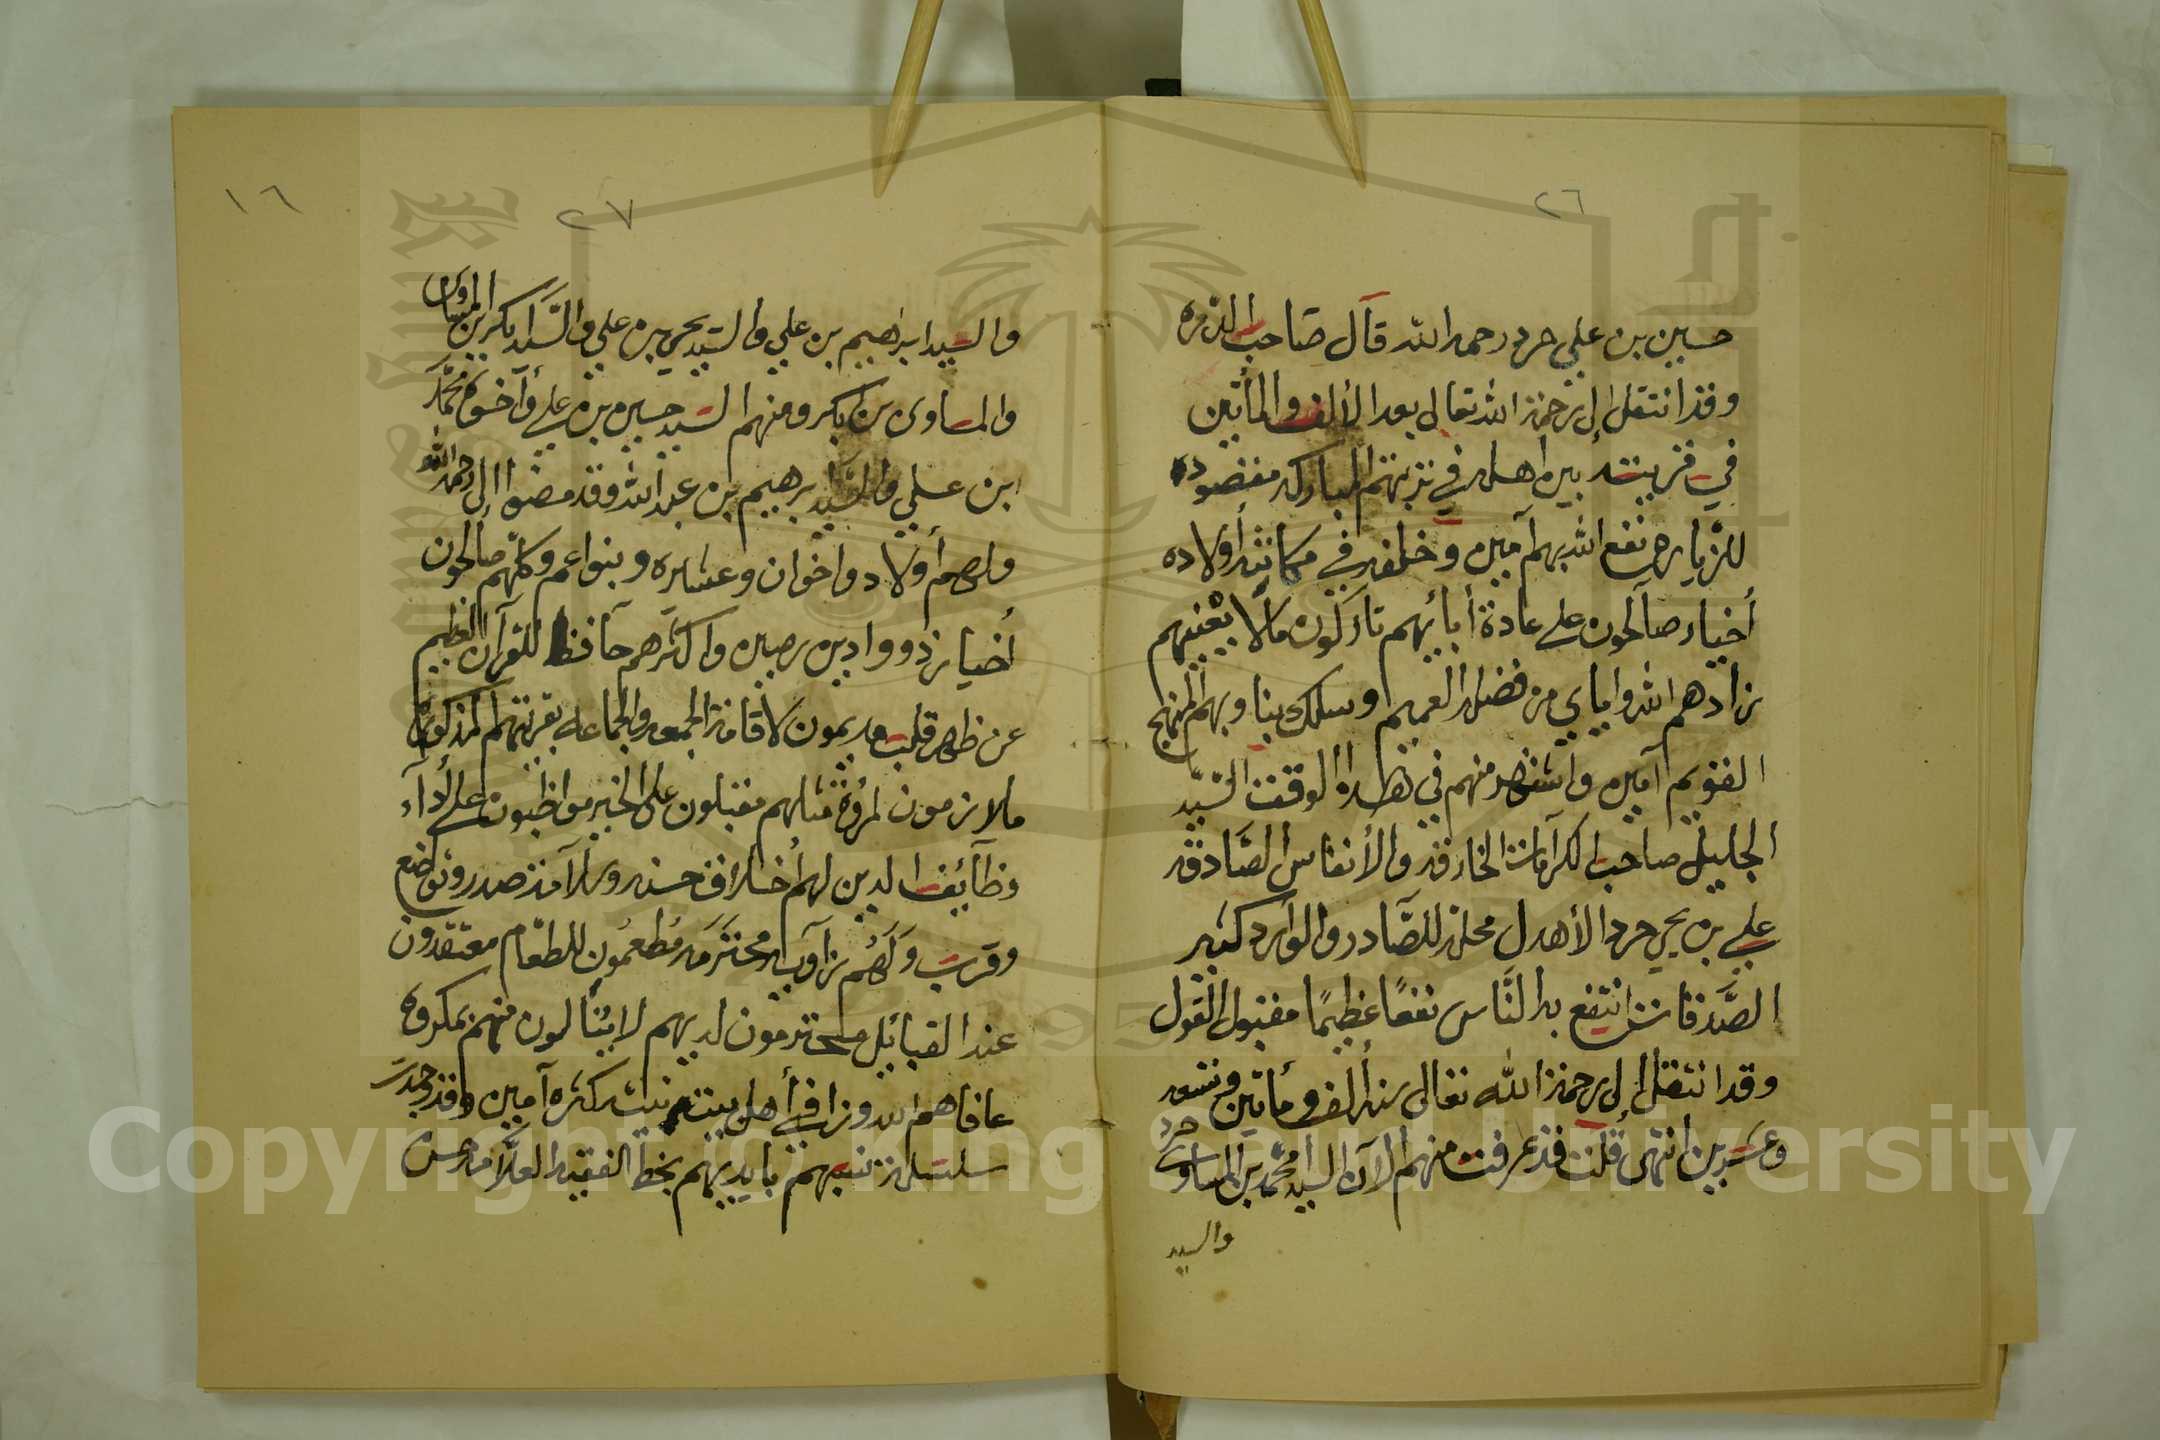 ٢٦
حسين بن علي حرد رحمه الله قال صاحب الدره
وقد انتقل إلى رحمة الله تعالى بعد الألف والمأتين
في قريته بين اهله في تربتهم المباركه مقصوده
للزياره نفع الله بهم آمين وخلفه في مكانته أولاده
أخيار صالحون على عادة أبائهم تاركون مالا يعنيهم
زادهم الله واياي من فضله العميم وسلك بنا وبهم المنهج
القويم آمين واشتهر منهم في هذا الوقت السيد
الجليل صاحب الكرامات الخارقه والأنفاس الصادقه
علي بن يحي حرد الأهدل محله للصادر والوارد كثير
الصدقات انتفع به النَّاس نفعًا عظيمًا مقبول القول
وقد انتقل إلى رحمة الله تعالى سنه ألف ومأتين وتسعه
وعشرين انتهى قلت قد عرفت منهم الآن السيد محمد بن المساوى حرد
والسيد
١٦
٢٧
والسيد ابراهيم بن علي والسيد يحي بن علي والسيد ابكر بن المساوى
والمساوى بن ابكر ومنهم السيد حسين بن علي وآخوه محمد
ابن علي والسيد ابرهيم بن عبد الله وقد مضوا الى رحمه الله
ولهم أولاد واخوان وعشايره وبنوا عم وكلهم صالحون
أخيار ذووا دين رصين واكثرهم حافظ للقرآن العظيم
عن ظهر قلب مديمون لاقامة الجمعه والجماعه بقريتهم المذكوره
ملازمون لمروة مثلهم مقبلون على الخير مواظبون على أدآء
وظآئف الدين لهم أخلاق حسنه وسلامة صدر وتواضع
وقرب وَلَهُم زاويه محترمه مُطعمُون للطعّام معتقدون
عند القبائل محترمون لديهم لا ينالون منهم بمكروه
عافاهم الله وزاد في أهل بيته كثره آمين وقد وجدت
سلسلة نسبهم بايديهم بخط الفقيه العلَّامه حسن